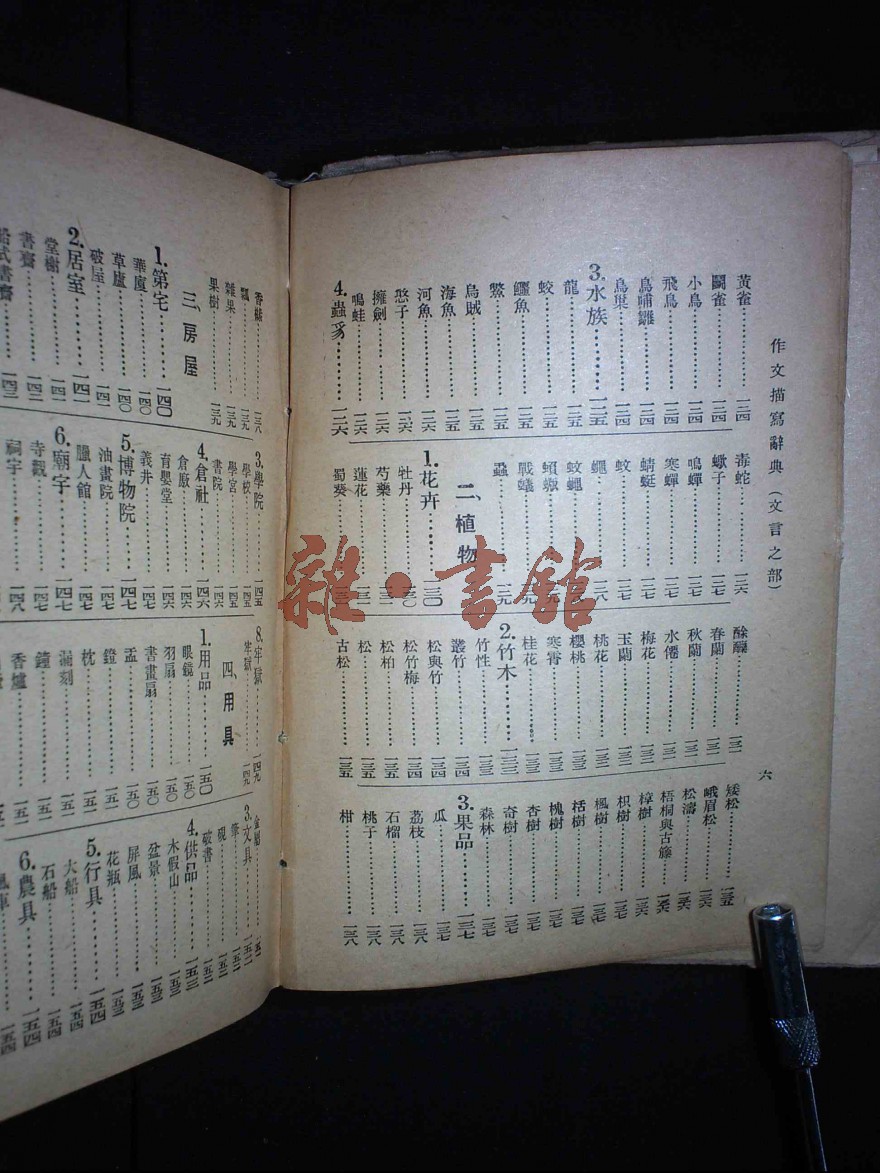 作文描寫辭典（文言之部）
六
黃雀…………一二四
鬪雀…………一二四
小鳥…………一二四
飛鳥…………一二四
鳥哺雛…………一二四
鳥巢…………一二四
3.水族…………一二五
龍…………一二五
蛟…………一二五
鱷魚…………一二五
鱉…………一二五
烏賊…………一二五
海魚…………一二五
河魚…………一二六
擁劍…………一二六
鳴蛙…………一二六
4.蟲豸…………一二六
毒蛇…………一二六
蠍子
鳴蟬
寒蟬
蜻蜓…………一二七
蚊…………一二七
蠅
蚊蠅
戰蟻
蝨…………一二九
二、植物
1.花卉…………一三〇
牡丹…………一三〇
芍藥…………一三一
蓮花…………一三一
蜀葵
酴醾…………一三二
春蘭…………一三二
秋蘭…………一三二
水僊…………一三二
梅花…………一三二
玉蘭…………一三二
桃花…………一三三
櫻桃…………一三三
桂花…………一三三
2.竹木…………一三三
竹性…………一三三
叢竹…………一三四
松與竹…………一三四
松竹梅…………一三四
松柏…………一三四
松
古松…………一三五
矮松…………一三五
峨眉松…………一三六
松濤…………一三六
梧桐與古籐…………一三六
樟樹…………一三六
枳樹…………一三七
楓樹…………一三七
栝樹…………一三七
槐樹…………一三七
杏樹…………一三七
奇樹…………一三七
森林…………一三七
3.果品…………一三七
瓜…………一三八
荔枝…………一三八
石榴…………一三八
桃子…………一三八
柑…………一三八
瓢…………一三九
雜果…………一三九
果樹…………一三九
三、房屋
1.第宅…………一四〇
華廈…………一四〇
草廬…………一四〇
破屋…………一四一
2.居室…………一四一
堂榭…………一四一
書齋…………一四二
船式書齋…………一四二
3.學院…………一四五
學校…………一四五
學宮…………一四五
書院…………一四六
4.倉社…………一四六
倉厫…………一四六
育嬰堂…………一四六
義井…………一四七
5.博物院…………一四七
油畫院…………一四七
臘人館…………一四七
6.廟宇…………一四七
寺觀…………一四七
祠宇…………一四八
8.牢獄…………一四九
牢獄…………一四九
四、用具
1.用品…………一五〇
眼鏡…………一五〇
羽扇…………一五〇
書畫扇…………一五〇
盂…………一五〇
鐙…………一五一
枕…………一五一
漏刻…………一五一
鐘…………一五一
香爐
3.文具…………一五二
筆…………一五二
硯…………一五二
破書…………一五二
4.供品…………一五三
木假山…………一五三
盆景…………一五三
屏風…………一五三
花瓶…………一五三
5.行具…………一五四
大船…………一五四
石船…………一五四
6.農具…………一五四
雜·書館